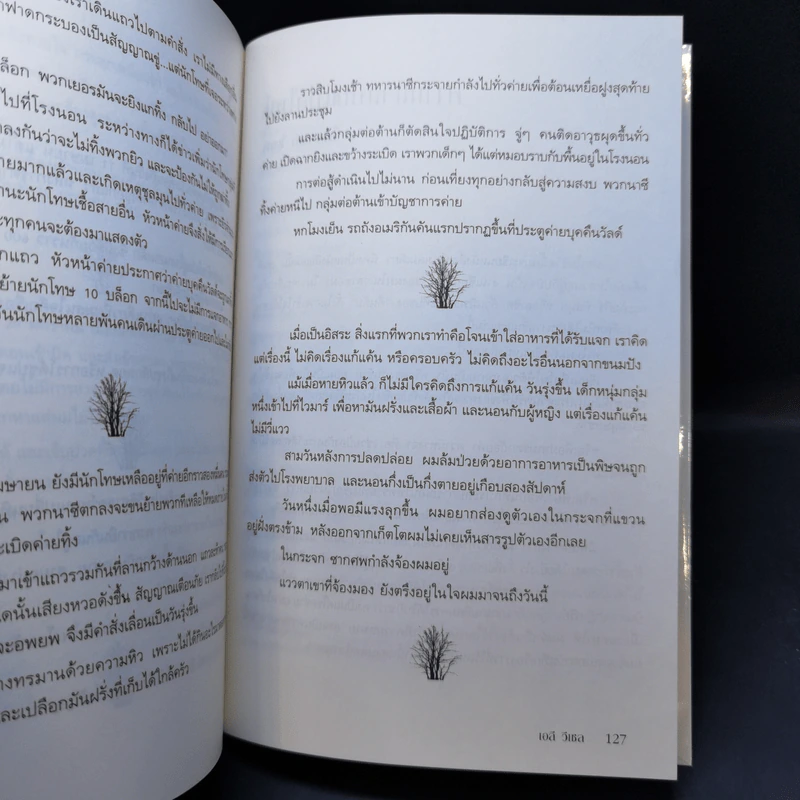 งเราเดินแถวไปตามคำสั่ง
ฟาดกระบองเป็นสัญญาณขู่...แต่นักโทษ
ล็อก พวกเยอรมันจะยิงแกทิ้ง กลับไป อย่า
ไปที่โรงนอน ระหว่างทางก็ได้ข่าวเพิ่มว่านักโทษ
กลงกันว่าจะไม่ทิ้งพวกยิว และจะป้องกันไม่ให้ถูก
ายมากแล้วและเกิดเหตุชุลมุนไปทั่วค่าย
านะนักโทษเชื้อสายอื่น หัวหน้าค่ายจึงสั่งให้มีการ
ะทุกคนจะต้องมาแสดงตัว
กแถว หัวหน้าค่ายประกาศว่าค่ายบุคคืนวัลด์
ย้ายนักโทษ 10 บล็อก จากนี้ไปจะไม่มีการแจกอาหาร
วันนักโทษหลายพันคนเดินผ่านประตูค่ายออกไป
มษายน ยังมีนักโทษเหลืออยู่ที่ค่ายอีกราวสองหมื่นคน
น พวกนาซีตกลงจะขนย้ายพวกที่เหลือให้หมด
ะเบิดค่ายทิ้ง
มาเข้าแถวรวมกันที่ลานกว้างด้านนอก
ใดนั้นเสียงหวอดังขึ้น สัญญาณเตือนภัย
จะอพยพ จึงมีคำสั่งเลื่อนเป็นวันรุ่งขึ้น
างทรมานด้วยความหิว เพราะไม่ได้กินอะไร
ละเปลือกมันฝรั่งที่เก็บได้ใกล้ครัว
ราวสิบโมงเช้า ทหารนาซีกระจายกำลังไปทั่วค่ายเพื่อต้อนเหยื่อฝูงสุดท้าย
ไปยังลานประชุม
และแล้วกลุ่มต่อต้านก็ตัดสินใจปฏิบัติการ จู่ๆ คนติดอาวุธผุดขึ้นทั่ว
ค่าย เปิดฉากยิงและขว้างระเบิด เราพวกเด็กๆ ได้แต่หมอบราบกับพื้นอยู่ในโรงนอน
การต่อสู้ดำเนินไปไม่นาน ก่อนเที่ยงทุกอย่างกลับสู่ความสงบ พวกนาซี
ทิ้งค่ายหนีไป กลุ่มต่อต้านเข้าบัญชาการค่าย
หกโมงเย็น รถถังอเมริกันคันแรกปรากฏขึ้นที่ประตูค่ายบุคคืนวัลด์
เมื่อเป็นอิสระ สิ่งแรกที่พวกเราทำคือโจนเข้าใส่อาหารที่ได้รับแจก เราคิด
แต่เรื่องนี้ ไม่คิดเรื่องแก้แค้น หรือครอบครัว ไม่คิดถึงอะไรอื่นนอกจากขนมปัง
แม้เมื่อหายหิวแล้ว ก็ไม่มีใครคิดถึงการแก้แค้น วันรุ่งขึ้น เด็กหนุ่มกลุ่ม
หนึ่งเข้าไปที่ไวมาร์ เพื่อหามันฝรั่งและเสื้อผ้า และนอนกับผู้หญิง แต่เรื่องแก้แค้น
ไม่มีวี่แวว
สามวันหลังการปลดปล่อย ผมล้มป่วยด้วยอาการอาหารเป็นพิษจนถูก
ส่งตัวไปโรงพยาบาล และนอนกึ่งเป็นกึ่งตายอยู่เกือบสองสัปดาห์
วันหนึ่งเมื่อพอมีแรงลุกขึ้น ผมอยากส่องดูตัวเองในกระจกที่แขวน
อยู่ฝั่งตรงข้าม หลังออกจากเก็ตโตผมไม่เคยเห็นสารรูปตัวเองอีกเลย
ในกระจก ซากศพกำลังจ้องผมอยู่
แววตาเขาที่จ้องมอง ยังตรึงอยู่ในใจผมมาจนถึงวันนี้
เอลี วีเซล 127